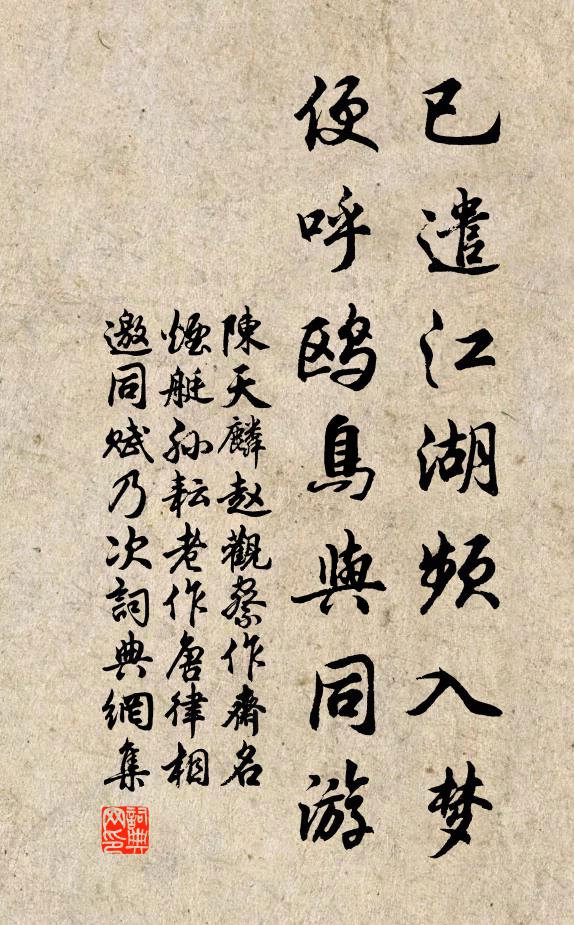 已遣江湖频入梦
便呼鸥鳥與同游
陳天麟赵觀察作齋名
煙艇孙耘老作唐律相
邀同赋乃次詞典網集
詞典网印